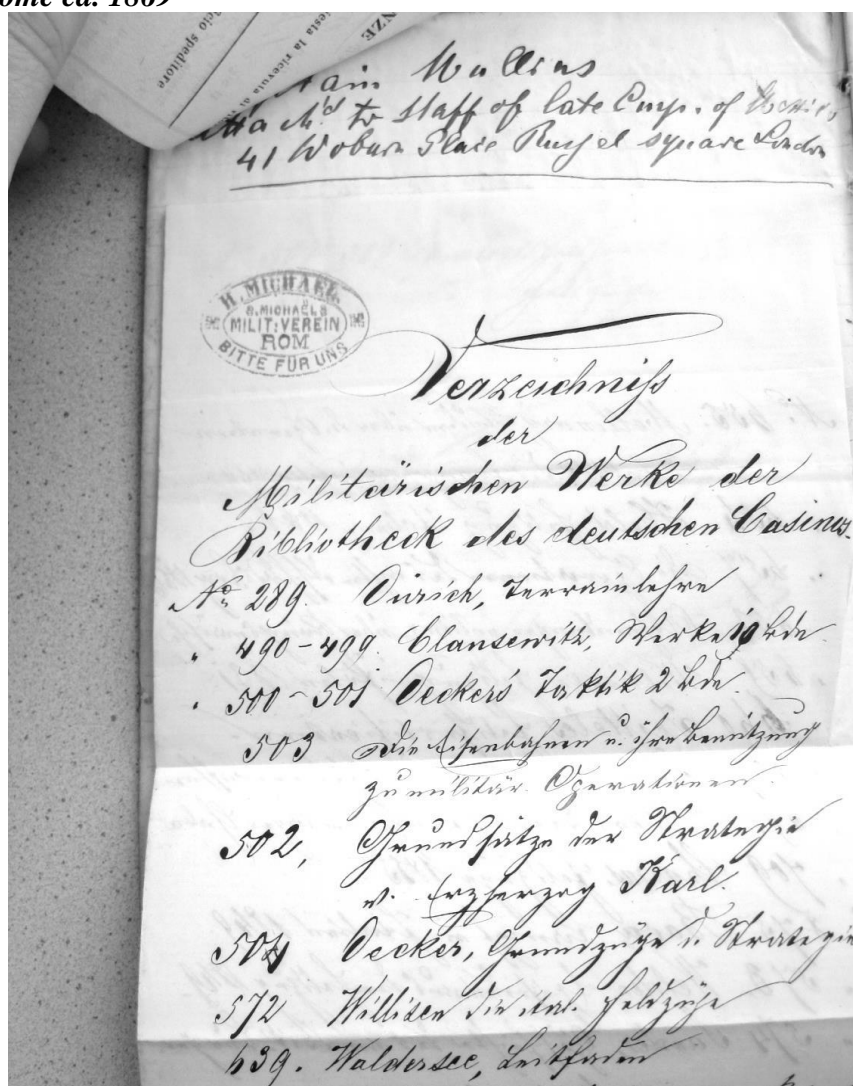 ome ca. 1869
cio speditore
esta la ricevuta di
NZE
ain Mullins
to Staff of late Emp. of
41 Woburn Place Russel square London
H. MICHAEL.
S. MICHAËLS
MILIT: VEREIN
ROM
BITTE FÜR UNS
Verzeichniss
der
Militärischen Werke der
Bibliotheck des deutschen Casinos.
No 289. Terrainlehre
" 490-499. Clausewitz, Werke 10 Bde.
" 500-501 Decker's Taktik 2 Bde.
503 Die Eisenbahnen u. ihre Benützung
zu militär. Operationen.
502, Grundsätze der Strategie
v. Erzherzog Karl.
504 Decker, Grundzüge d. Strategie
572 Willisen die ital. Feldzüge
639. Waldersee, Leitfaden